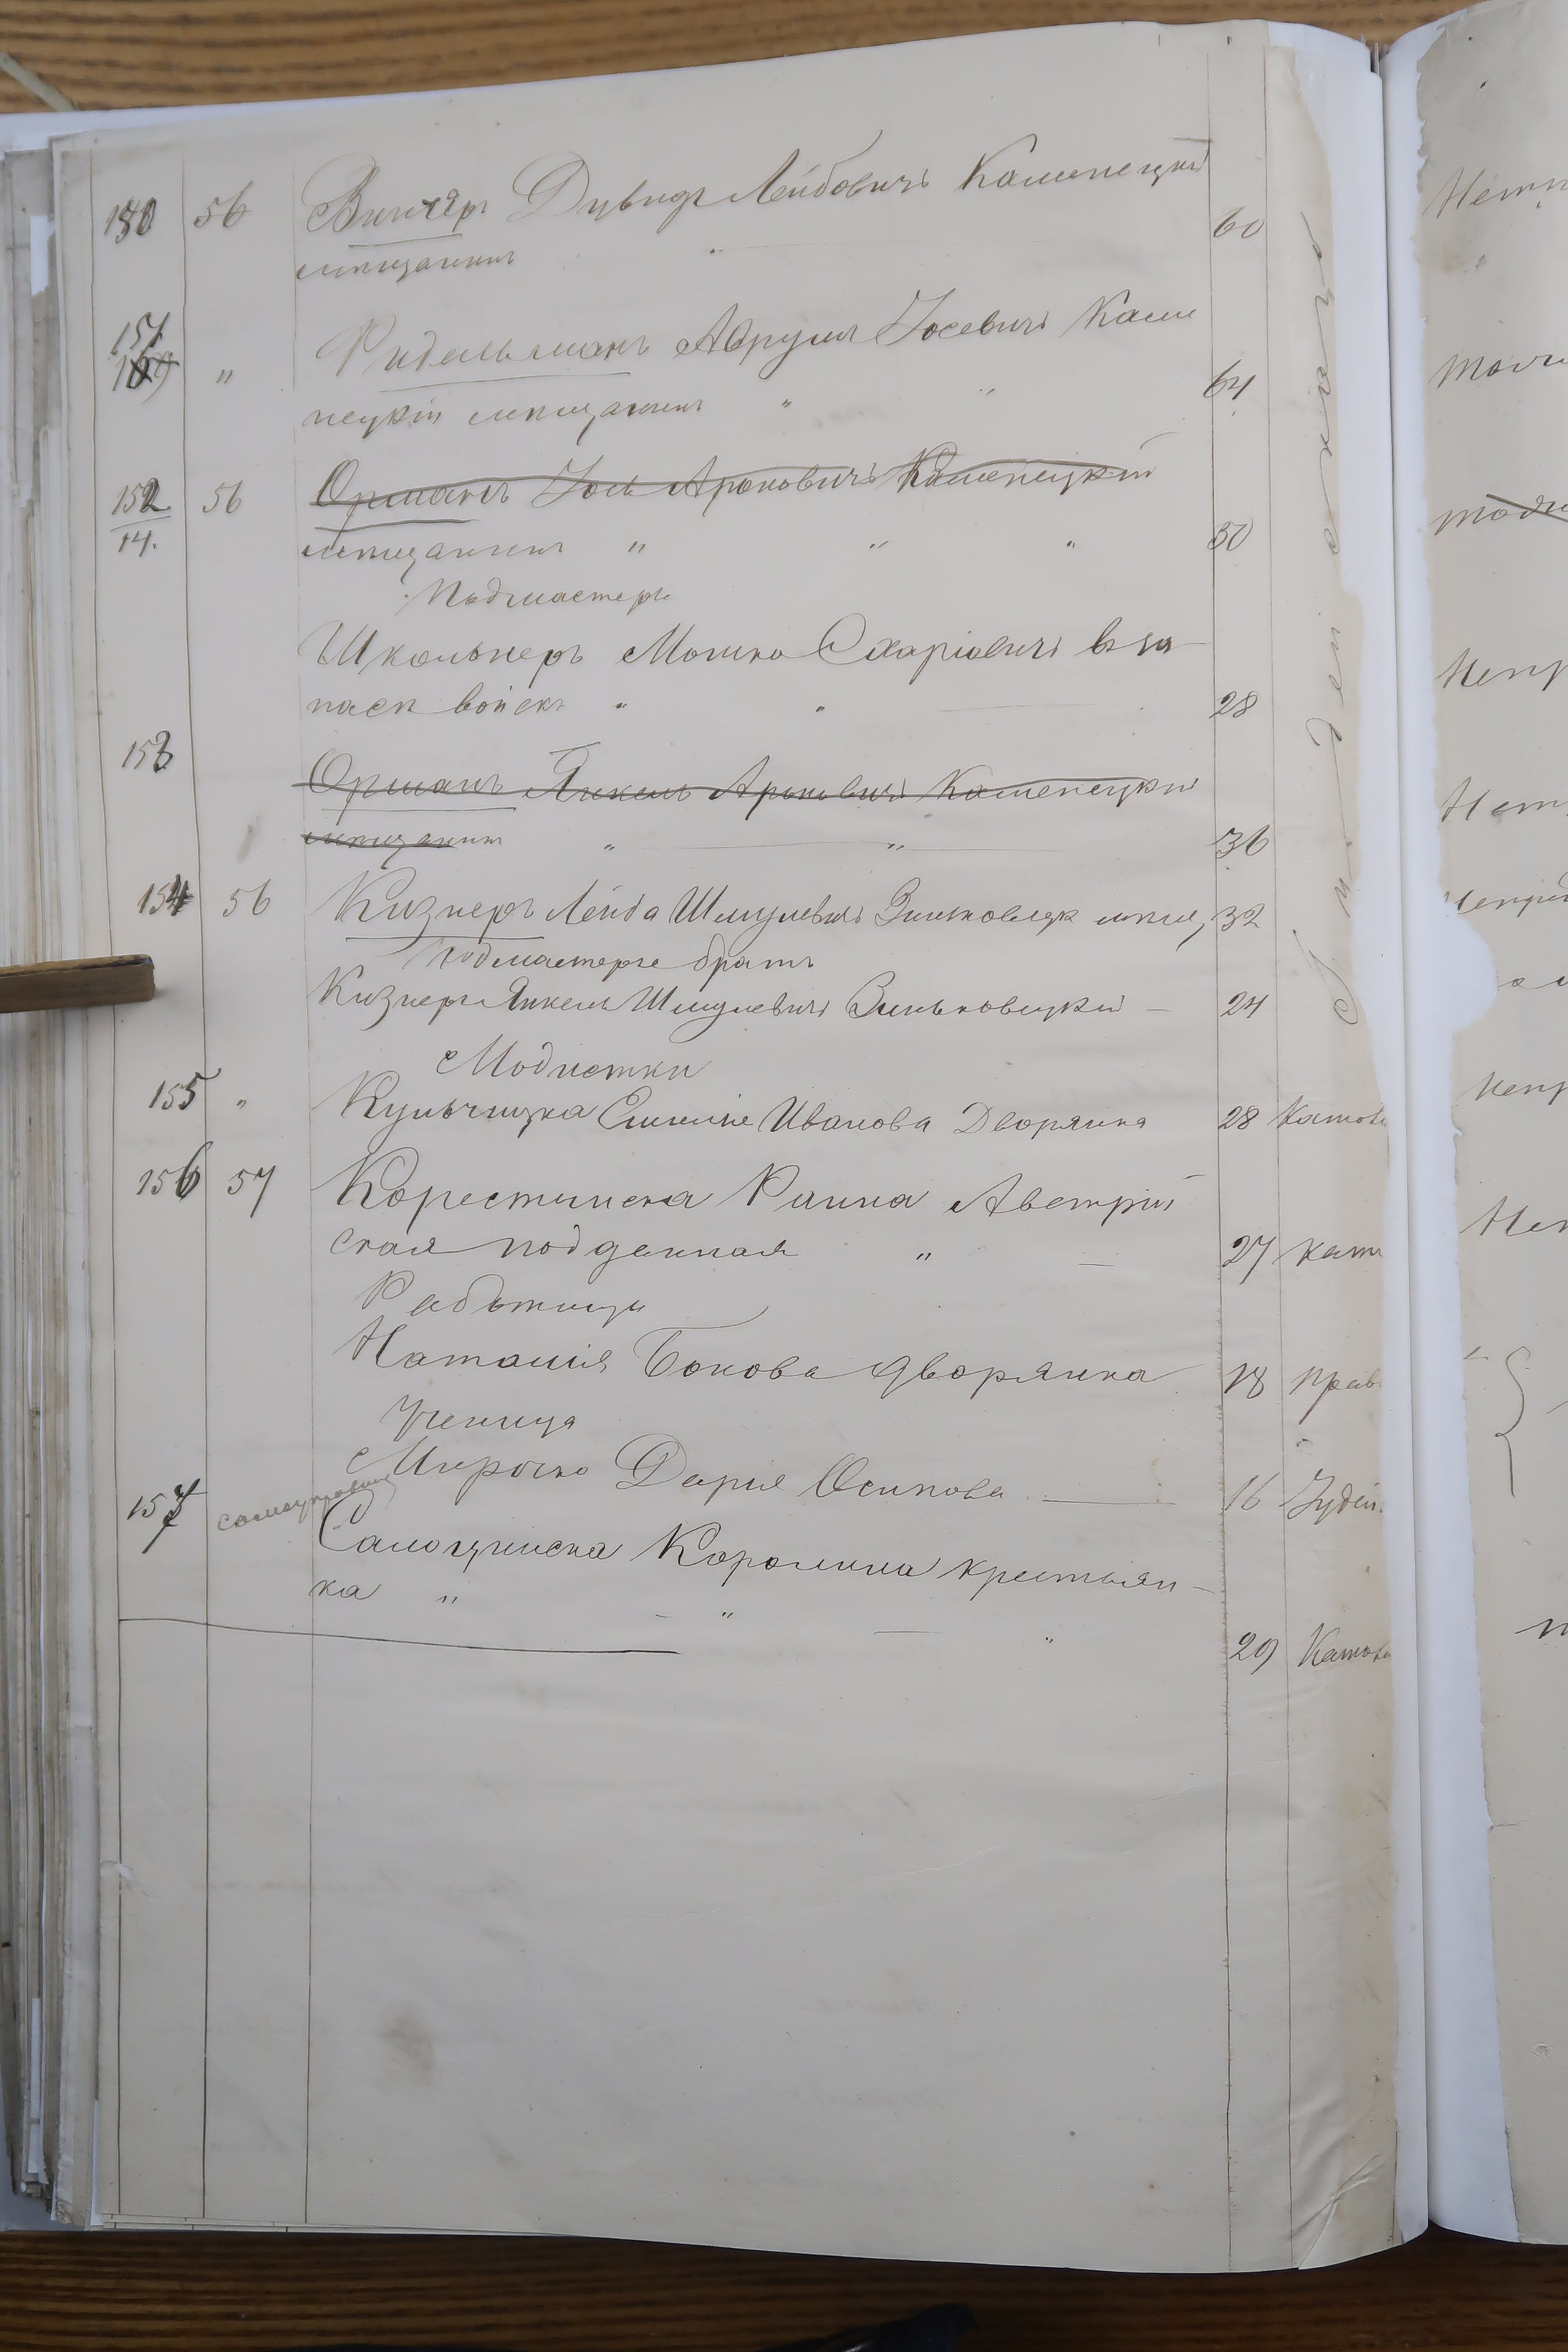 150 56 Винчеръ Дувидъ Лейбовичъ Каменецкій
мѣщанинъ " 60
151
169 " Фидельманъ Аврумъ Іосевичъ Каме
нецкій мѣщанинъ " " 64
152 56 Орманъ Іось Ароновичъ Каменецкій
14. мѣщанинъ " " " 50
Подмастерье
Школьнеръ Мошко Сахаріовичъ въ за
пасѣ войскъ " " 28
153 Орманъ Янкель Ароновичъ Каменецкій
мѣщанинъ " " 36
154 56 Кизнеръ Лейба Шмулевичъ Зиньковецк мѣщ 32
подмастерье братъ
Кизнеръ Янкель Шмулевичъ Зиньковецкій — 24
Модистки
155 " Кульчицка Емилие Иванова Дворянка 28 Катол
156 57 Корестинска Раина Австрій
ская подданная " — 27 кат
Работница
Наталія Бокова дворянка 18 прав
Ученица
Мирочко Дарія Осипова — 16 Іудей.
157
Самогулиска Каролина крестьян-
ка " " " 29 Катол
Іудейскаго